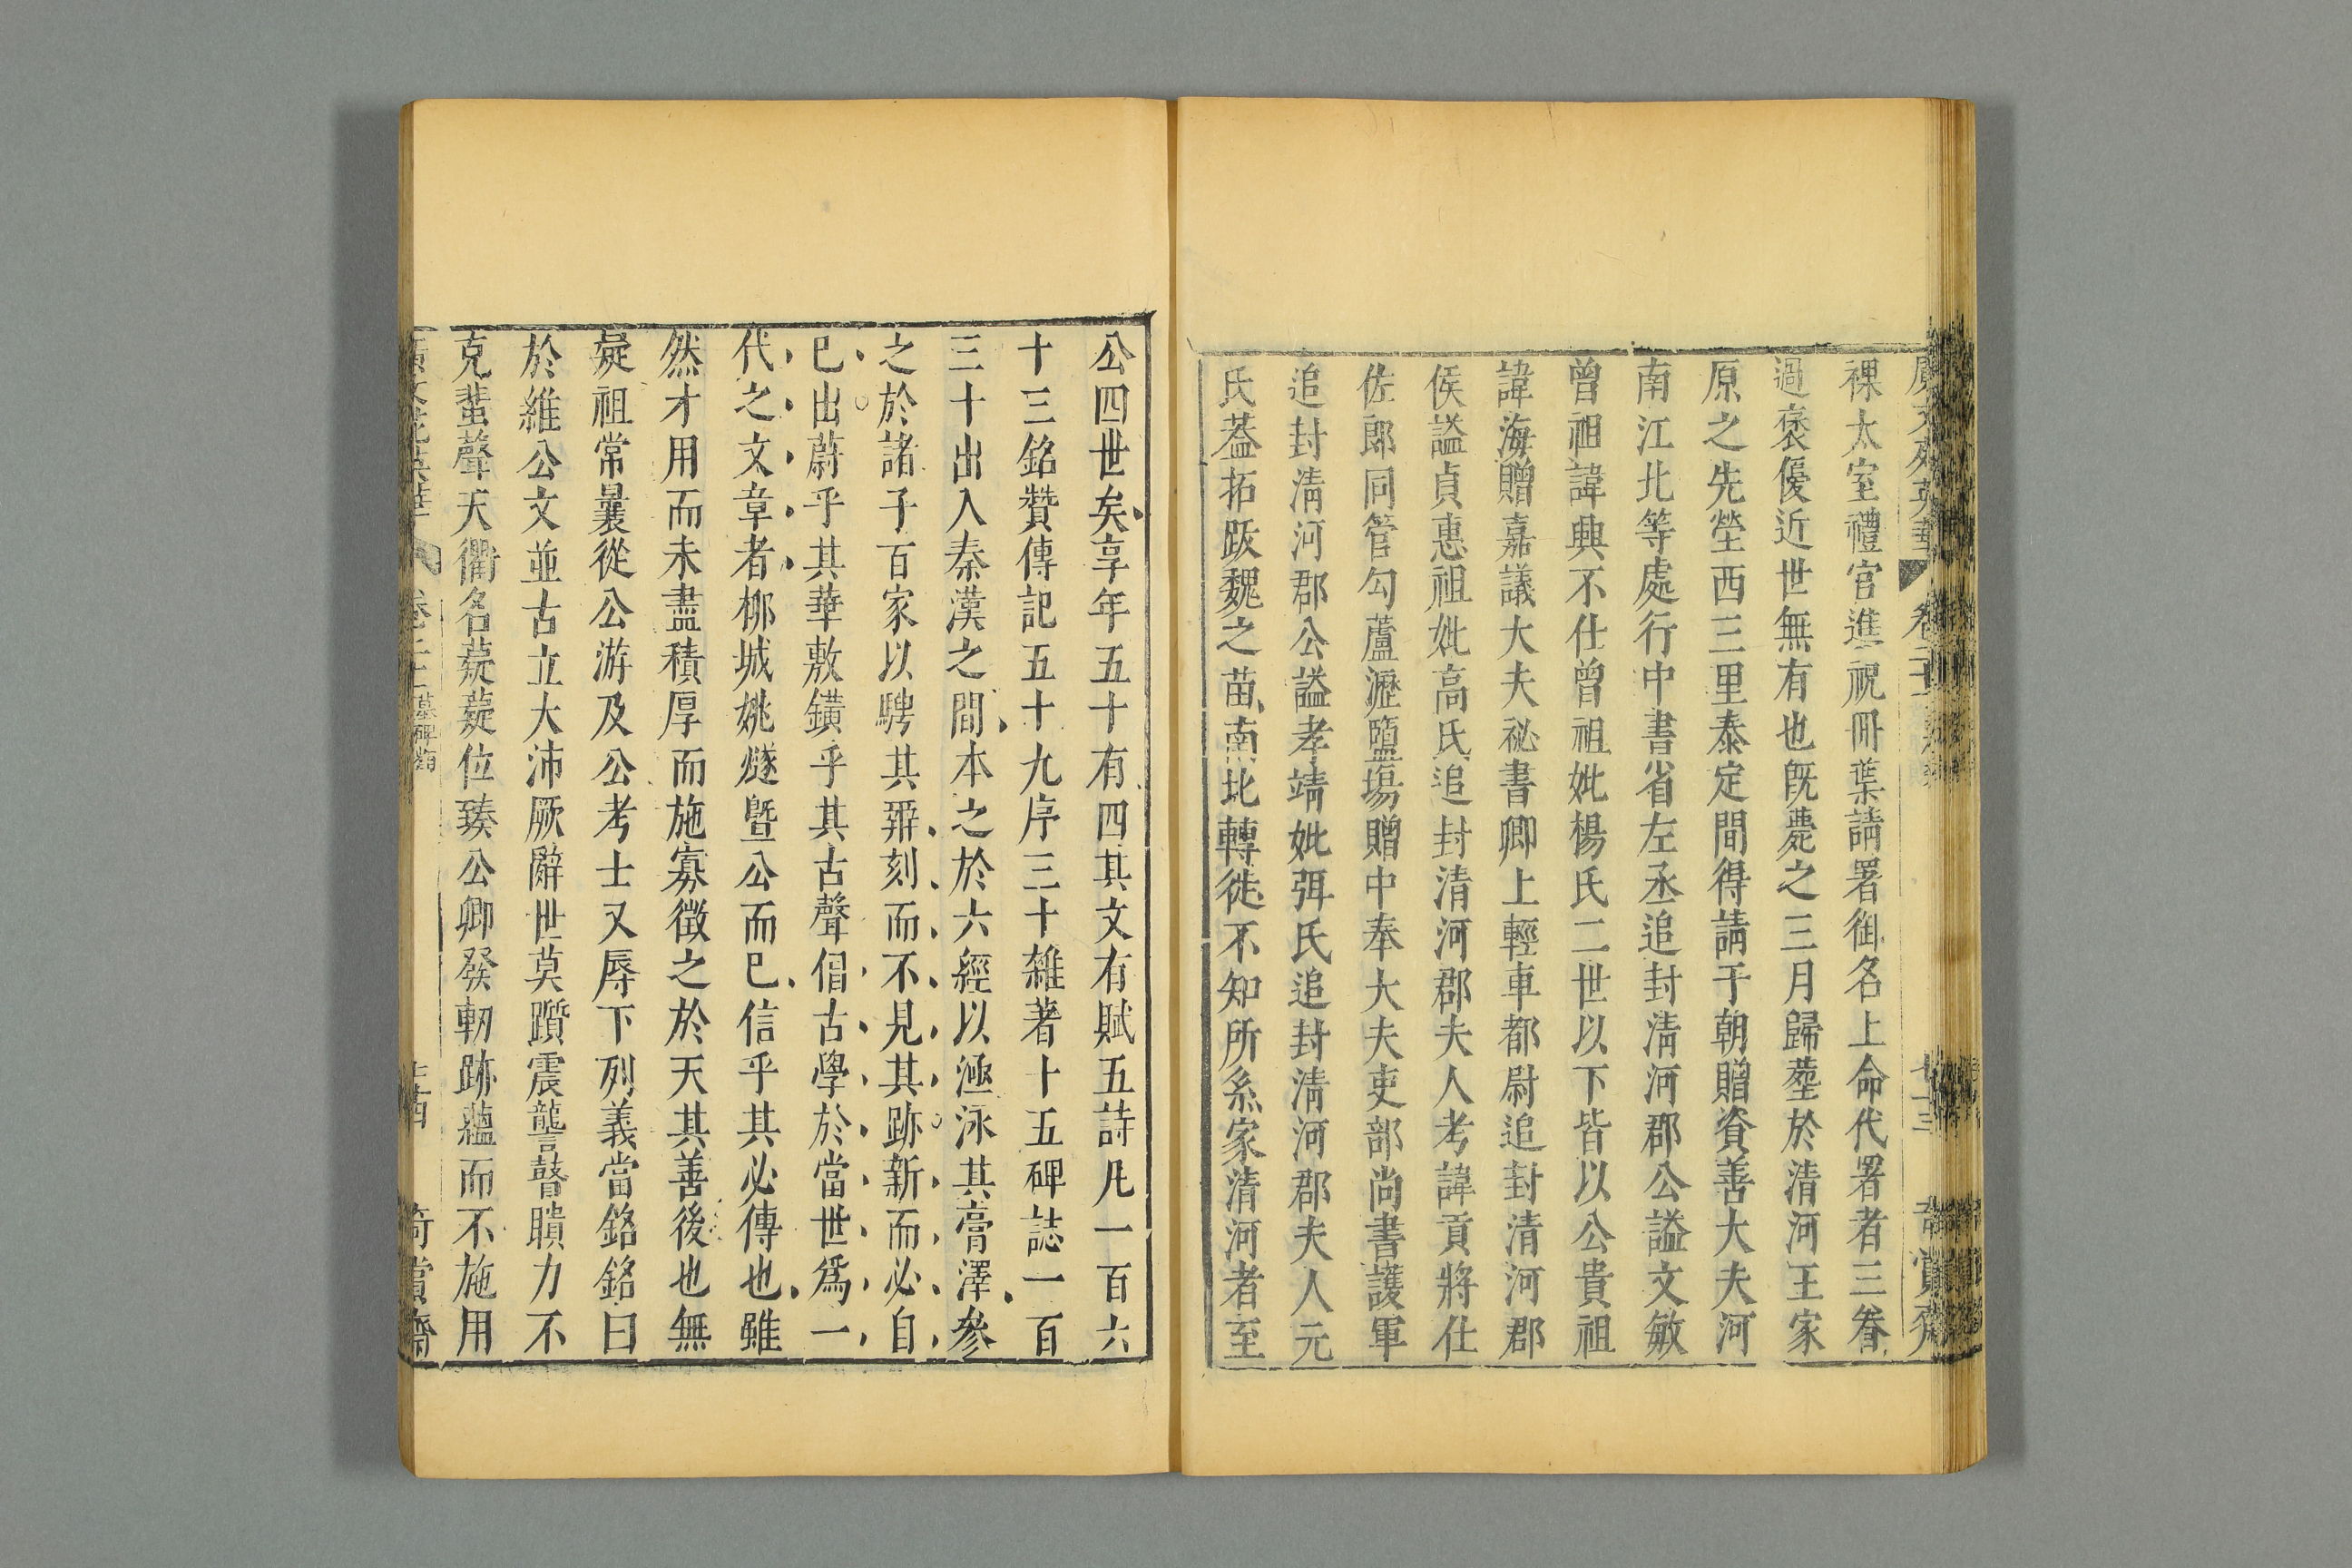 裸太室禮官進祝冊葉請署御名上命代署者三眷
過褒優近世無有也旣薨之三月歸塟於清河王家
原之先塋西三里泰定間得請于朝贈資善大夫河
南江北等處行中書省左丞追封清河郡公謚文敏
曾祖諱興不仕曾祖妣楊氏二世以下皆以公貴祖
諱海贈嘉議大夫祕書卿上輕車都尉追封清河郡
侯謚貞惠祖妣高氏追封清河郡夫人考諱貢將仕
佐郎同管勾蘆瀝鹽場贈中奉大夫吏部尚書護軍
追封清河郡公謚孝靖妣弭氏追封清河郡夫人元
氏葢拓跋魏之苗南北轉徙不知所系家清河者至
公四世矣享年五十有四其文有賦五詩凡一百六
十三銘贊傳記五十九序三十雜著十五碑誌一百
三十出入秦漢之間本之於六經以涵泳其膏澤參
之於諸子百家以騁其辯刻而不見其跡新而必自
已出蔚乎其華敷鏌乎其古聲倡古學於當世爲一
代之文章者栁城姚燧曁公而已信乎其必傳也雖
然才用而未盡積厚而施寡徵之於天其善後也無
疑祖常曩從公游及公考士又辱下列義當銘銘曰
於維公文並古立大沛厥辭世莫躓震讋瞽聵力不
克蜚聲天衢名薿薿位臻公卿發軔跡蘊而不施用
卷二十 墓碑 七十四 奇賞齋